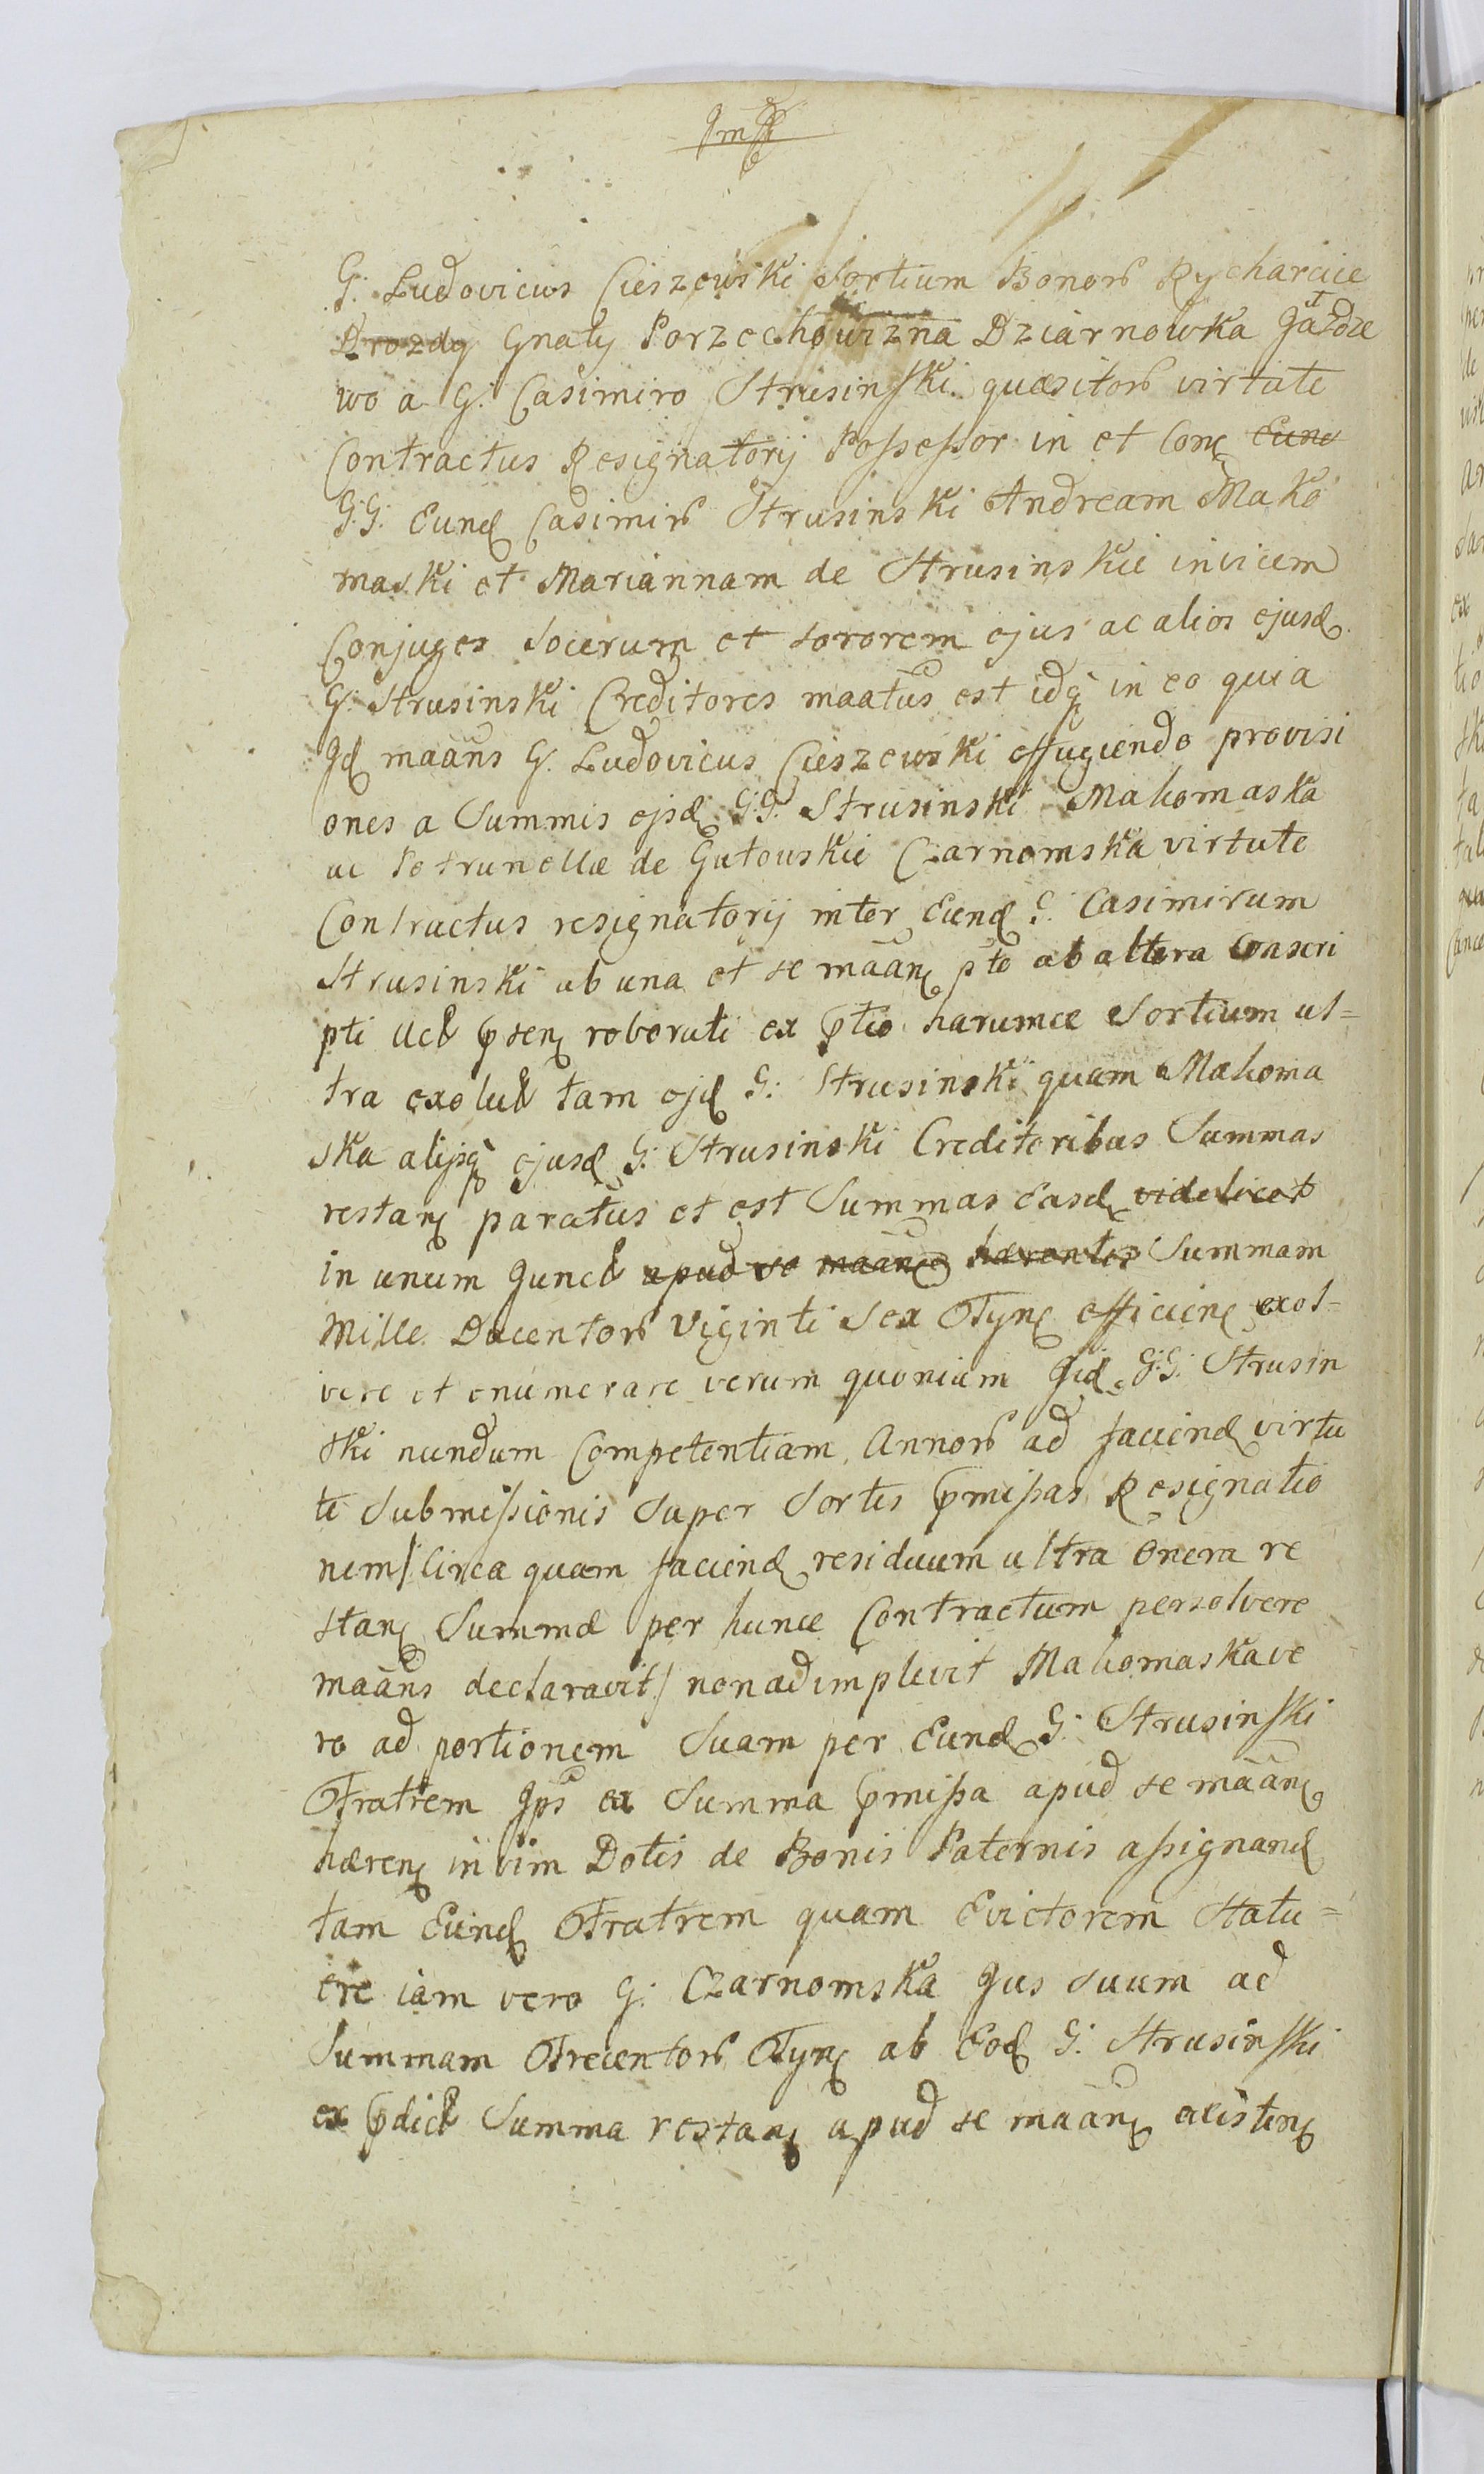 G. Ludovicus Cieszewski Sortium Bonorũ Rycharcice
Drozdy Gnaty Porzechowizna Dziarnowka Gatdze
wo a G. Casimiro Strusinski quæsitorũ virtute
Contractus Resignatorij Possessor in et Conṭ Eund
G.G. Eund Casimirũ Strusinski Andream Mako
maski et Mariannam de Strusinskie invicem
Conjuges Socerum et sororem ejus ac alios ejusd
G. Strusinski Creditores maatus est idq in eo quia
Id maans G. Ludovicus Cieszewski effugiendo provisi
ones a Summis ejsd G.G. Strusinski Makomaska
ac Petrunellæ de Gutouskie Czarnomska virtute
Contractus resignatorij inter Eund G. Casimirum
Strusinski ab una et se maan pte ab altera Conscri
pti Act psen roborati ex ptio harumce Sortium ul=
tra exolut tam ejd G. Strusinski quam Makoma
ska alijsq ejusd G. Strusinski Creditoribus Summas
restan paratus et est Summas Easd videlicet
in unum Junct apud se maan hærentes Summam
Mille Ducentorũ Viginti Sex Tyn efficien exol=
vere et enumerare verum quoniam Jid G.G. Strusin
ski nundum Competentiam Annorũ ad faciend virtu
te Submissionis Super Sortes pmissas Resignatio
nem/ Circa quam faciend residuum ultra Onera re
stan Summæ per hunce Contractum persolvere
maans declaravit/ non adimplevit Makomaska ve
ro ad portionem Suam per Eund G. Strusinski
Fratrem Ips ex Summa pmissa apud se maan
hæren in vim Dotis de Bonis Paternis assignand
tam Eund Fratrem quam Evictorem Statu=
ere iam vero G. Czarnomska Jus suum ad
Summam Trecentorũ Tyn ab Eod G. Strusinski
ex pdict Summa restan apud se maan existen